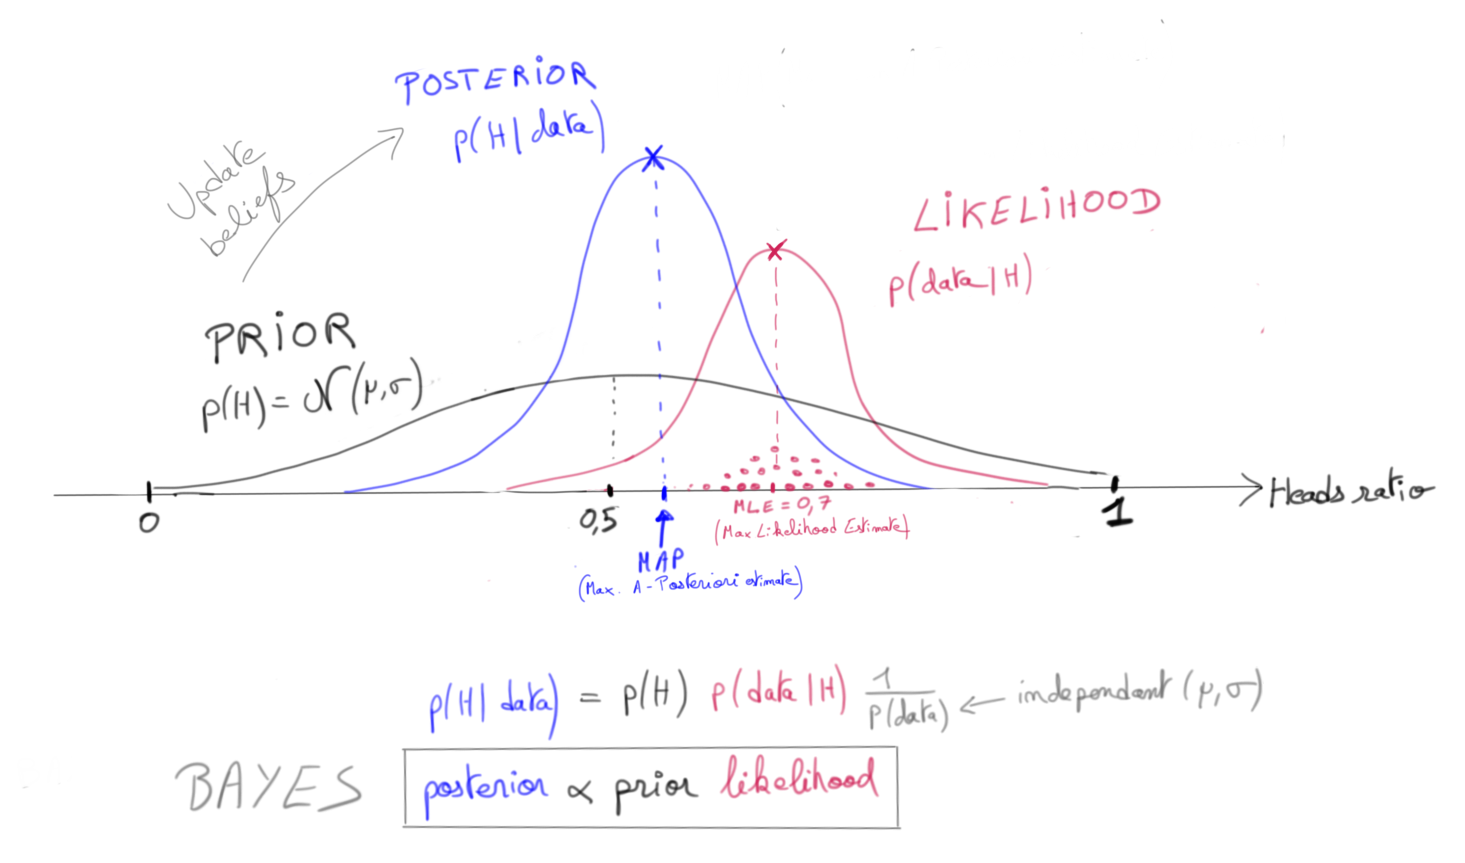 POSTERIOR
p(H|data)
Update
beliefs
LIKELIHOOD
p(data|H)
PRIOR
p(H) = N(μ,σ)
0
0,5
MLE = 0,7
(Max Likelihood Estimate)
1
Heads ratio
MAP
(Max. A-Posteriori estimate)
p(H|data) = p(H) p(data|H) 1/p(data) ← independant (μ,σ)
BAYES
posterior ∝ prior likelihood